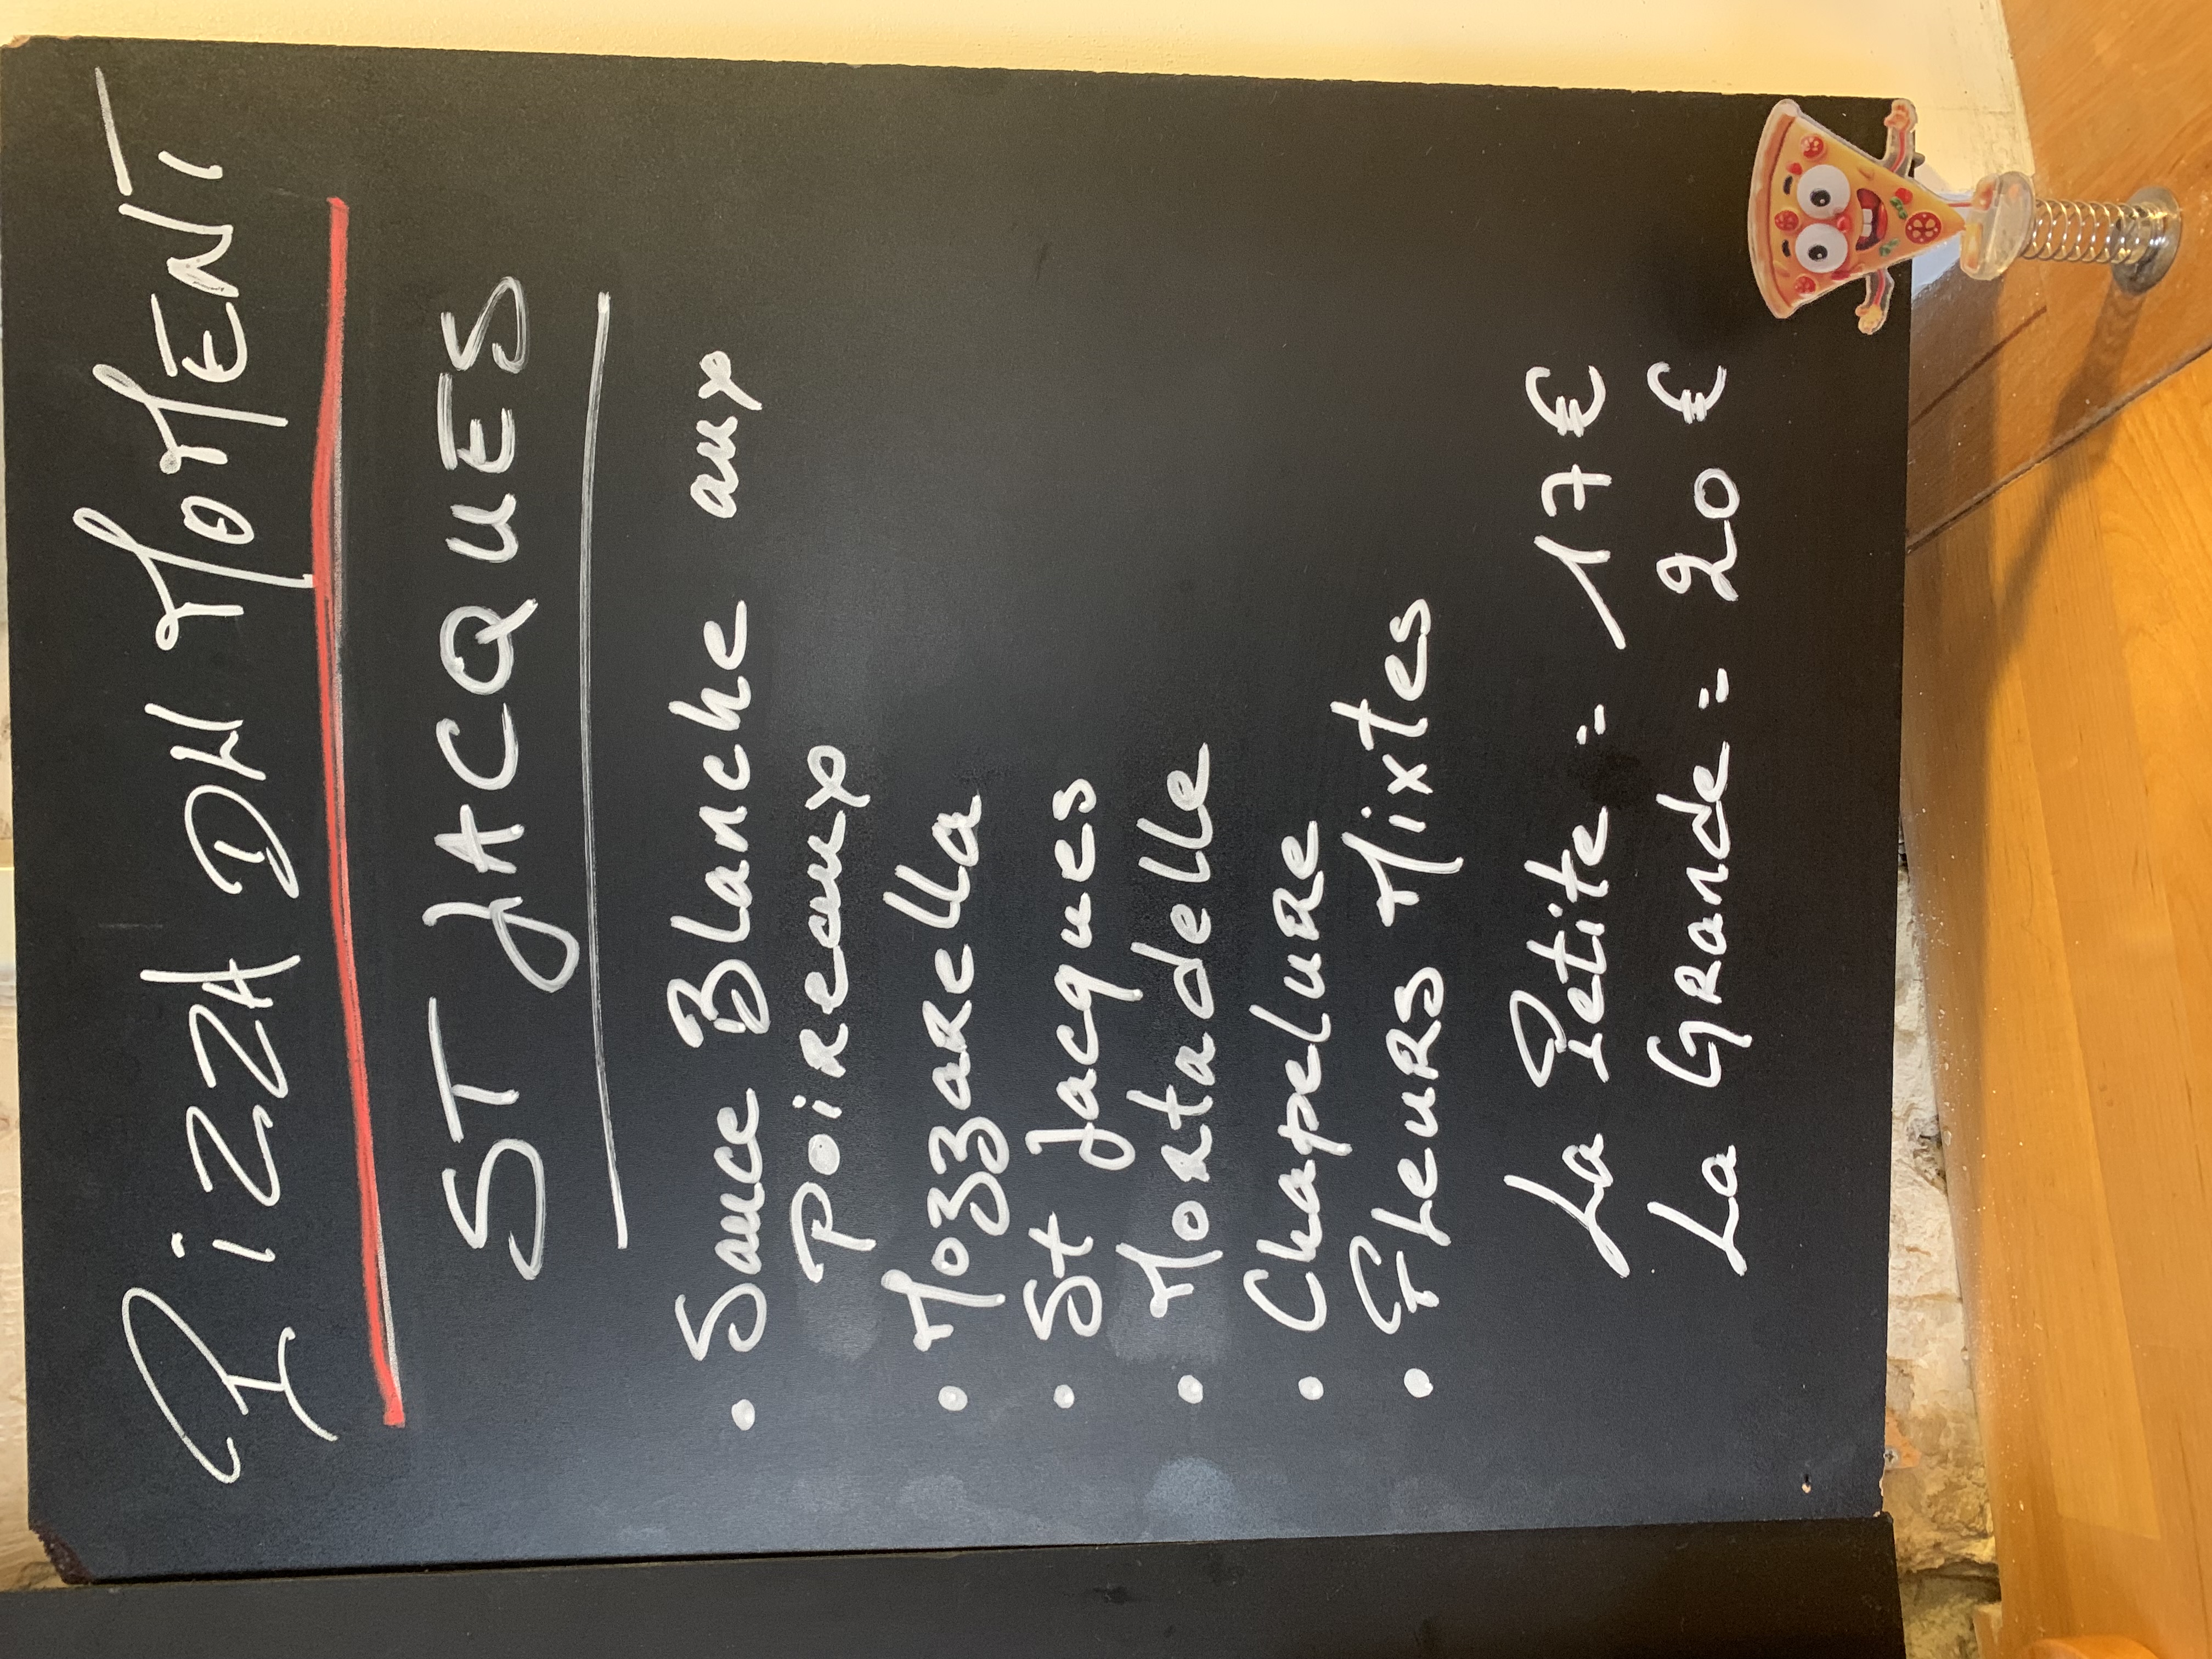 PiZZA DU MOMENT
ST JACQUES
• Sauce Blanche aux
poireaux
• Mozzarella
• St Jacques
• Mortadelle
• Chapelure
• Fleurs Mixtes
La Petite = 17 €
La Grande = 20 €